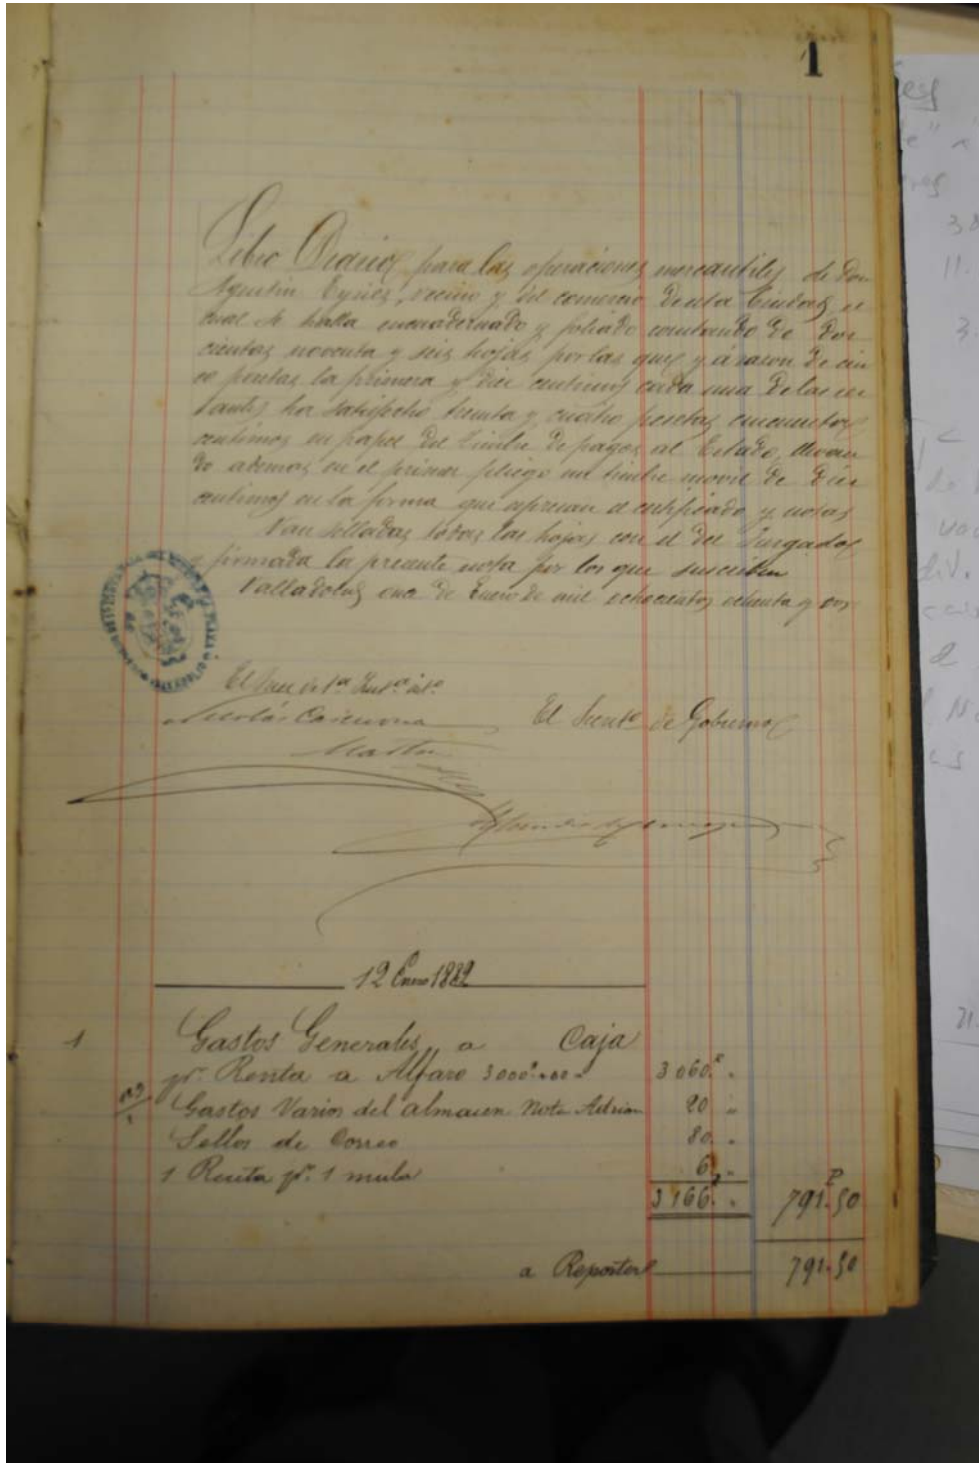 1
Libro Diario para las operaciones mercantiles de Don
Agustin Eyries, vecino y del comercio de esta Ciudad, el
cual se halla encuadernado y foliado constando de Dos
cientas noventa y seis hojas por las que y á razon de cin
co pesetas la primera y diez centimos cada una de las res
tantes ha satisfecho treinta y cuatro pesetas cincuenta
centimos en papel del timbre de pagos al Estado, llevan
do ademas en el primer pliego un timbre movil de diez
centimos en la forma que expresan el certificado y notas
Van selladas todas las hojas con el del Juzgado
y firmada la presente nota por los que suscriben
Valladolid once de Enero de mil ochocientos ochenta y dos
El Juez de 1ª Instª
Nicolás Casanova
El Secretº de Gobierno
12 Enero 1882
1 Gastos Generales a Caja
pr. Renta a Alfaro 3000 3060
Gastos Varios del almacen Nota Adrian 20
Sellos de Correo 80
1 Renta pr. 1 mula 6
3166 791.50
a Reporter 791.50